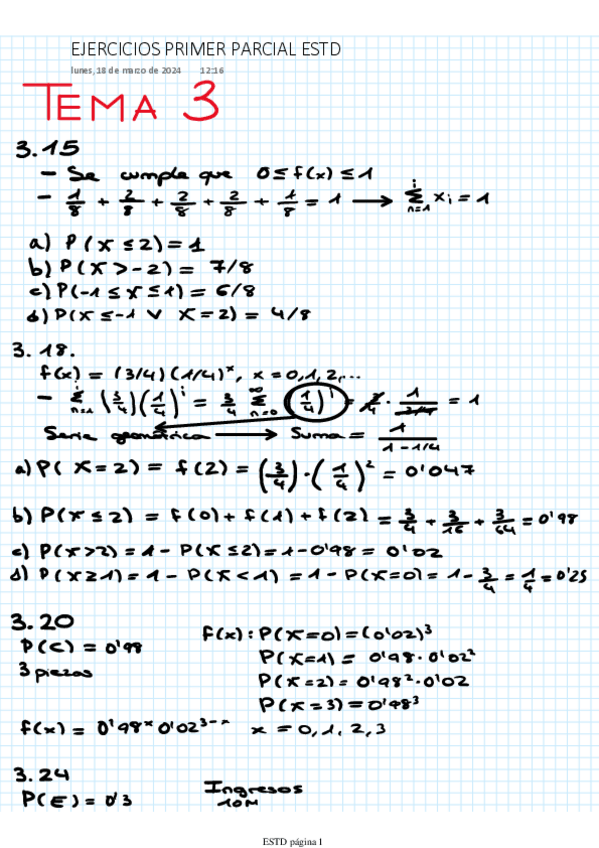 EJERCICIOS PRIMER PARCIAL ESTD
lunes, 18 de marzo de 2024 12:16
TEMA 3
3.15
- Se cumple que 0 ≤ f(x) ≤ 1
- 1/8 + 2/8 + 2/8 + 2/8 + 1/8 = 1 → Σ_{n=1}^{i} x_i = 1
a) P(X ≤ 2) = 1
b) P(X > -2) = 7/8
c) P(-1 ≤ X ≤ 1) = 6/8
d) P(X ≤ -1 ∨ X = 2) = 4/8
3.18.
f(x) = (3/4)(1/4)^x, x = 0,1,2,...
- Σ_{n=1}^{i} (3/4)(1/4)^i = 3/4 Σ_{n=0}^{∞} (1/4)^i = 3/4 · 1/(3/4) = 1
Serie geométrica → Suma = 1/(1-1/4)
a) P(X = 2) = f(2) = (3/4)·(1/4)^2 = 0'047
b) P(X ≤ 2) = f(0) + f(1) + f(2) = 3/4 + 3/16 + 3/64 = 0'98
c) P(X > 2) = 1 - P(X ≤ 2) = 1 - 0'98 = 0'02
d) P(X ≥ 1) = 1 - P(X < 1) = 1 - P(X = 0) = 1 - 3/4 = 1/4 = 0'25
3.20
P(C) = 0'98
3 piezas
f(x): P(X=0) = (0'02)^3
P(X=1) = 0'98 · 0'02^2
P(X=2) = 0'98^2 · 0'02
P(X=3) = 0'98^3
f(x) = 0'98^x 0'02^{3-x} x = 0,1,2,3
3.24
P(E) = 0'3
Ingresos
10M
ESTD página 1